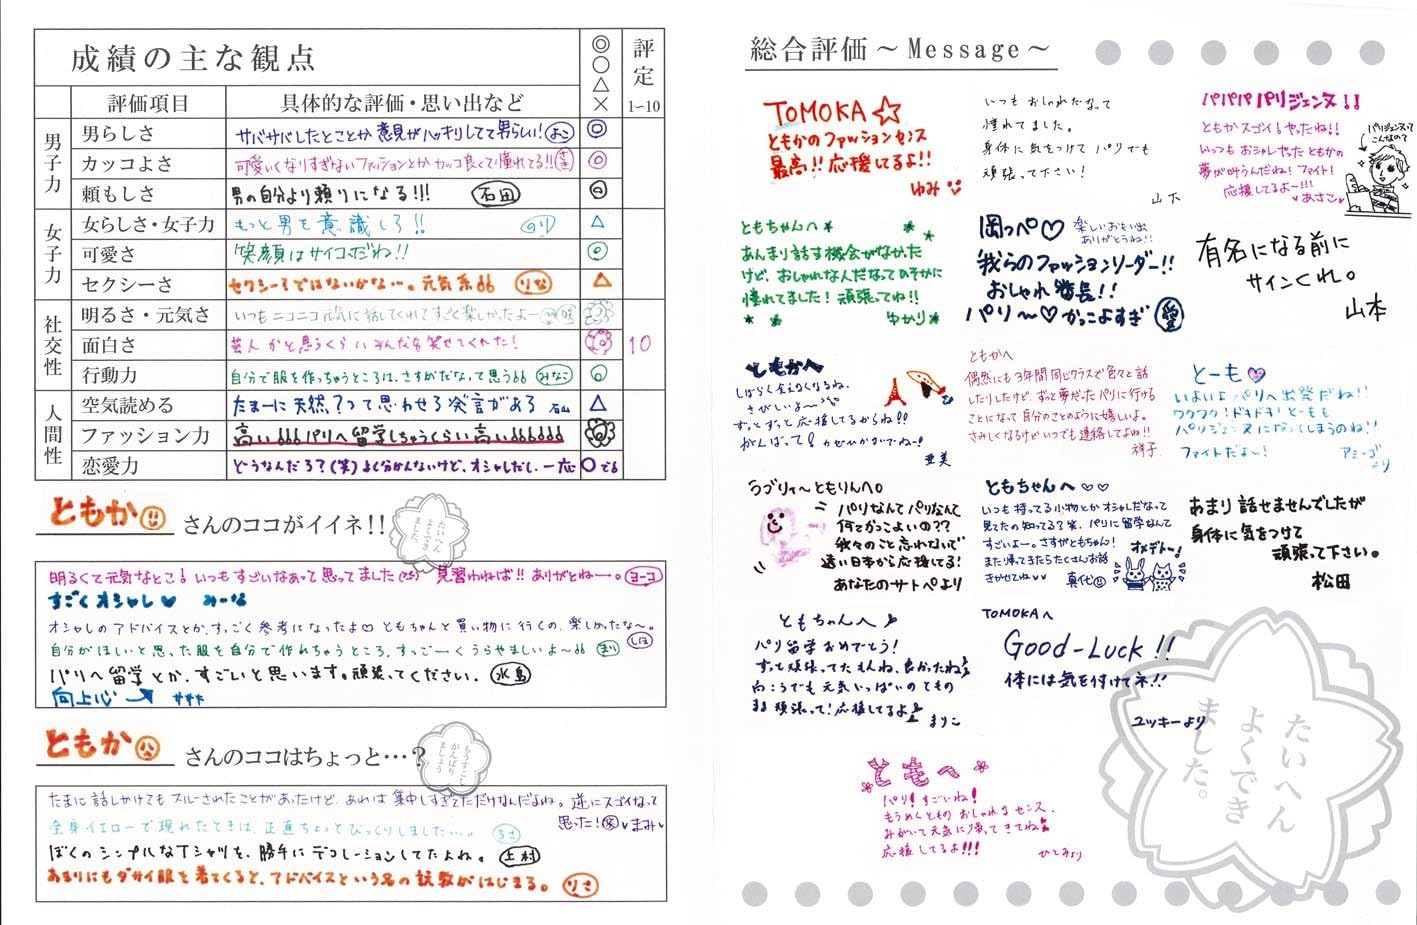 成績の主な観点
◎○△×
評定
1～10
評価項目
具体的な評価・思い出など
男子力
男らしさ
サバサバしたとことか意見がハッキリしてて男らしい! よこ
◎
カッコよさ
可愛いくなりすぎないファッションとかカッコ良くて憧れてる!!
◎
頼もしさ
男の自分より頼りになる!!! 石田
◎
女子力
女らしさ・女子力
もっと男を意識しろ!! のり
△
可愛さ
笑顔はサイコーだね!!
○
セクシーさ
セクシーそではないかな…。元気系 りな
△
社交性
明るさ・元気さ
いつもニコニコ元気に話してくれてすごく楽しかったよー
面白さ
芸人かと思うくらいみんなを笑せてくれた!
10
行動力
自分で服を作っちゃうところは、さすがだなって思う みなこ
◎
人間性
空気読める
たまーに天然?って思わせる発言がある 石山
△
ファッション力
高い パリへ留学しちゃうくらい高い
恋愛力
どうなんだろ?(笑)よく分かんないけど、オシャレだし、一応
○ でる
ともか
さんのココがイイネ!!
たいへん
よくでき
ました。
明るくて元気なとこ! いつもすごいなあって思ってました 見習わねば!! ありがとねー。 ヨーコ
すごくオシャレ♥ みーな
オシャレのアドバイスとか、すっごく参考になったよ♡ ともちゃんと買い物に行くの、楽しかったな～。
しほ
自分がほしいと思った服を自分で作れちゃうところ、すっごーくうらやましいよ～ まり
パリへ留学とか、すごいと思います。頑張ってください。 水島
向上心 サササ
ともか
さんのココはちょっと…?
もうすこし
がんばり
ましょう
たまに話しかけてもスルーされたことがあったけど、あれは集中しすぎてただけなんだよね。逆にスゴイなって
思った!笑♥まみ♥
全身イエローで現れたときは、正直ちょっとびっくりしました…。 るさ
ぼくのシンプルなTシャツを、勝手にデコレーションしてたよね。 上村
あまりにもダサイ服を着てくると、アドバイスという名の説教がはじまる。 りさ
総合評価～Message～
TOMOKA☆
ともかのファッションセンス
最高!!応援してるよ!!
ゆみ
いつもおしゃれだなって
憧れてました。
身体に気をつけてパリでも
頑張って下さい!
山本
パパパパリジェンヌ!!
ともかスゴイ!やったね!!
いっつもおシャレだったともかの
夢が叶うんだね!ファイト!
応援してるよー!!!
♥あさこ♥
パリジェンヌって
こんなの?
ともちゃんへ
あんまり話す機会がなかった
けど、おしゃれなんだなってひそかに
憧れてました!頑張ってね!!
ゆかり
岡っぺ♡
楽しいおもい出
ありがとうね!!
我らのファッションリーダー!!
おしゃれ番長!!
パリ～♡かっこよすぎ
有名になる前に
サインくれ。
山本
ともかへ
しばらく会えなくなるね、
さびしいよ～
ずっとずっと応援してるからね!!
がんばって! かぜひかないでねー!
亜美
ともかへ
偶然にも3年間同じクラスで色々と話
したりしたけど、ずっと夢だったパリに行ける
ことになって自分のことのように嬉しいよ。
さみしくなるけどいつでも連絡してよね!!
祥子
とーも♥
いよいよパリへ出発だね!!
ワクワク!ドキドキ!とーもも
パリジェンヌになってしまうのね!!
ファイトだよ～!
アミーゴ
より
ラブリィ～ともりんへ。
パリなんてパリなんて
何てかっこよいの??
我々のこと忘れないで
遠い日本から応援してる!
あなたのサトペより
ともちゃんへ♡♡
いつも持ってる小物とかオシャレだなって
見てたの知ってる?笑 パリに留学なんて
すごいよー。さすがともちゃん!
また帰ってきたらたくさんお話
きかせてね♥♥
真代
オメデトー!
あまり話せませんでしたが
身体に気をつけて
頑張って下さい。
松田
ともちゃんへ
パリ留学おめでとう!
ずっと頑張ってたもんね、良かったね
向こうでも元気いっぱいのともの
まま頑張って!応援してるよ
まりこ
TOMOKAへ
Good-Luck!!
体には気を付けてネ!!
ユッキーより
ともへ
パリ!すごいね!
もうめくとものおしゃれなセンス、
みがいて元気に帰ってきてね
応援してるよ!!!
ひとみより
たいへん
よくでき
ました。